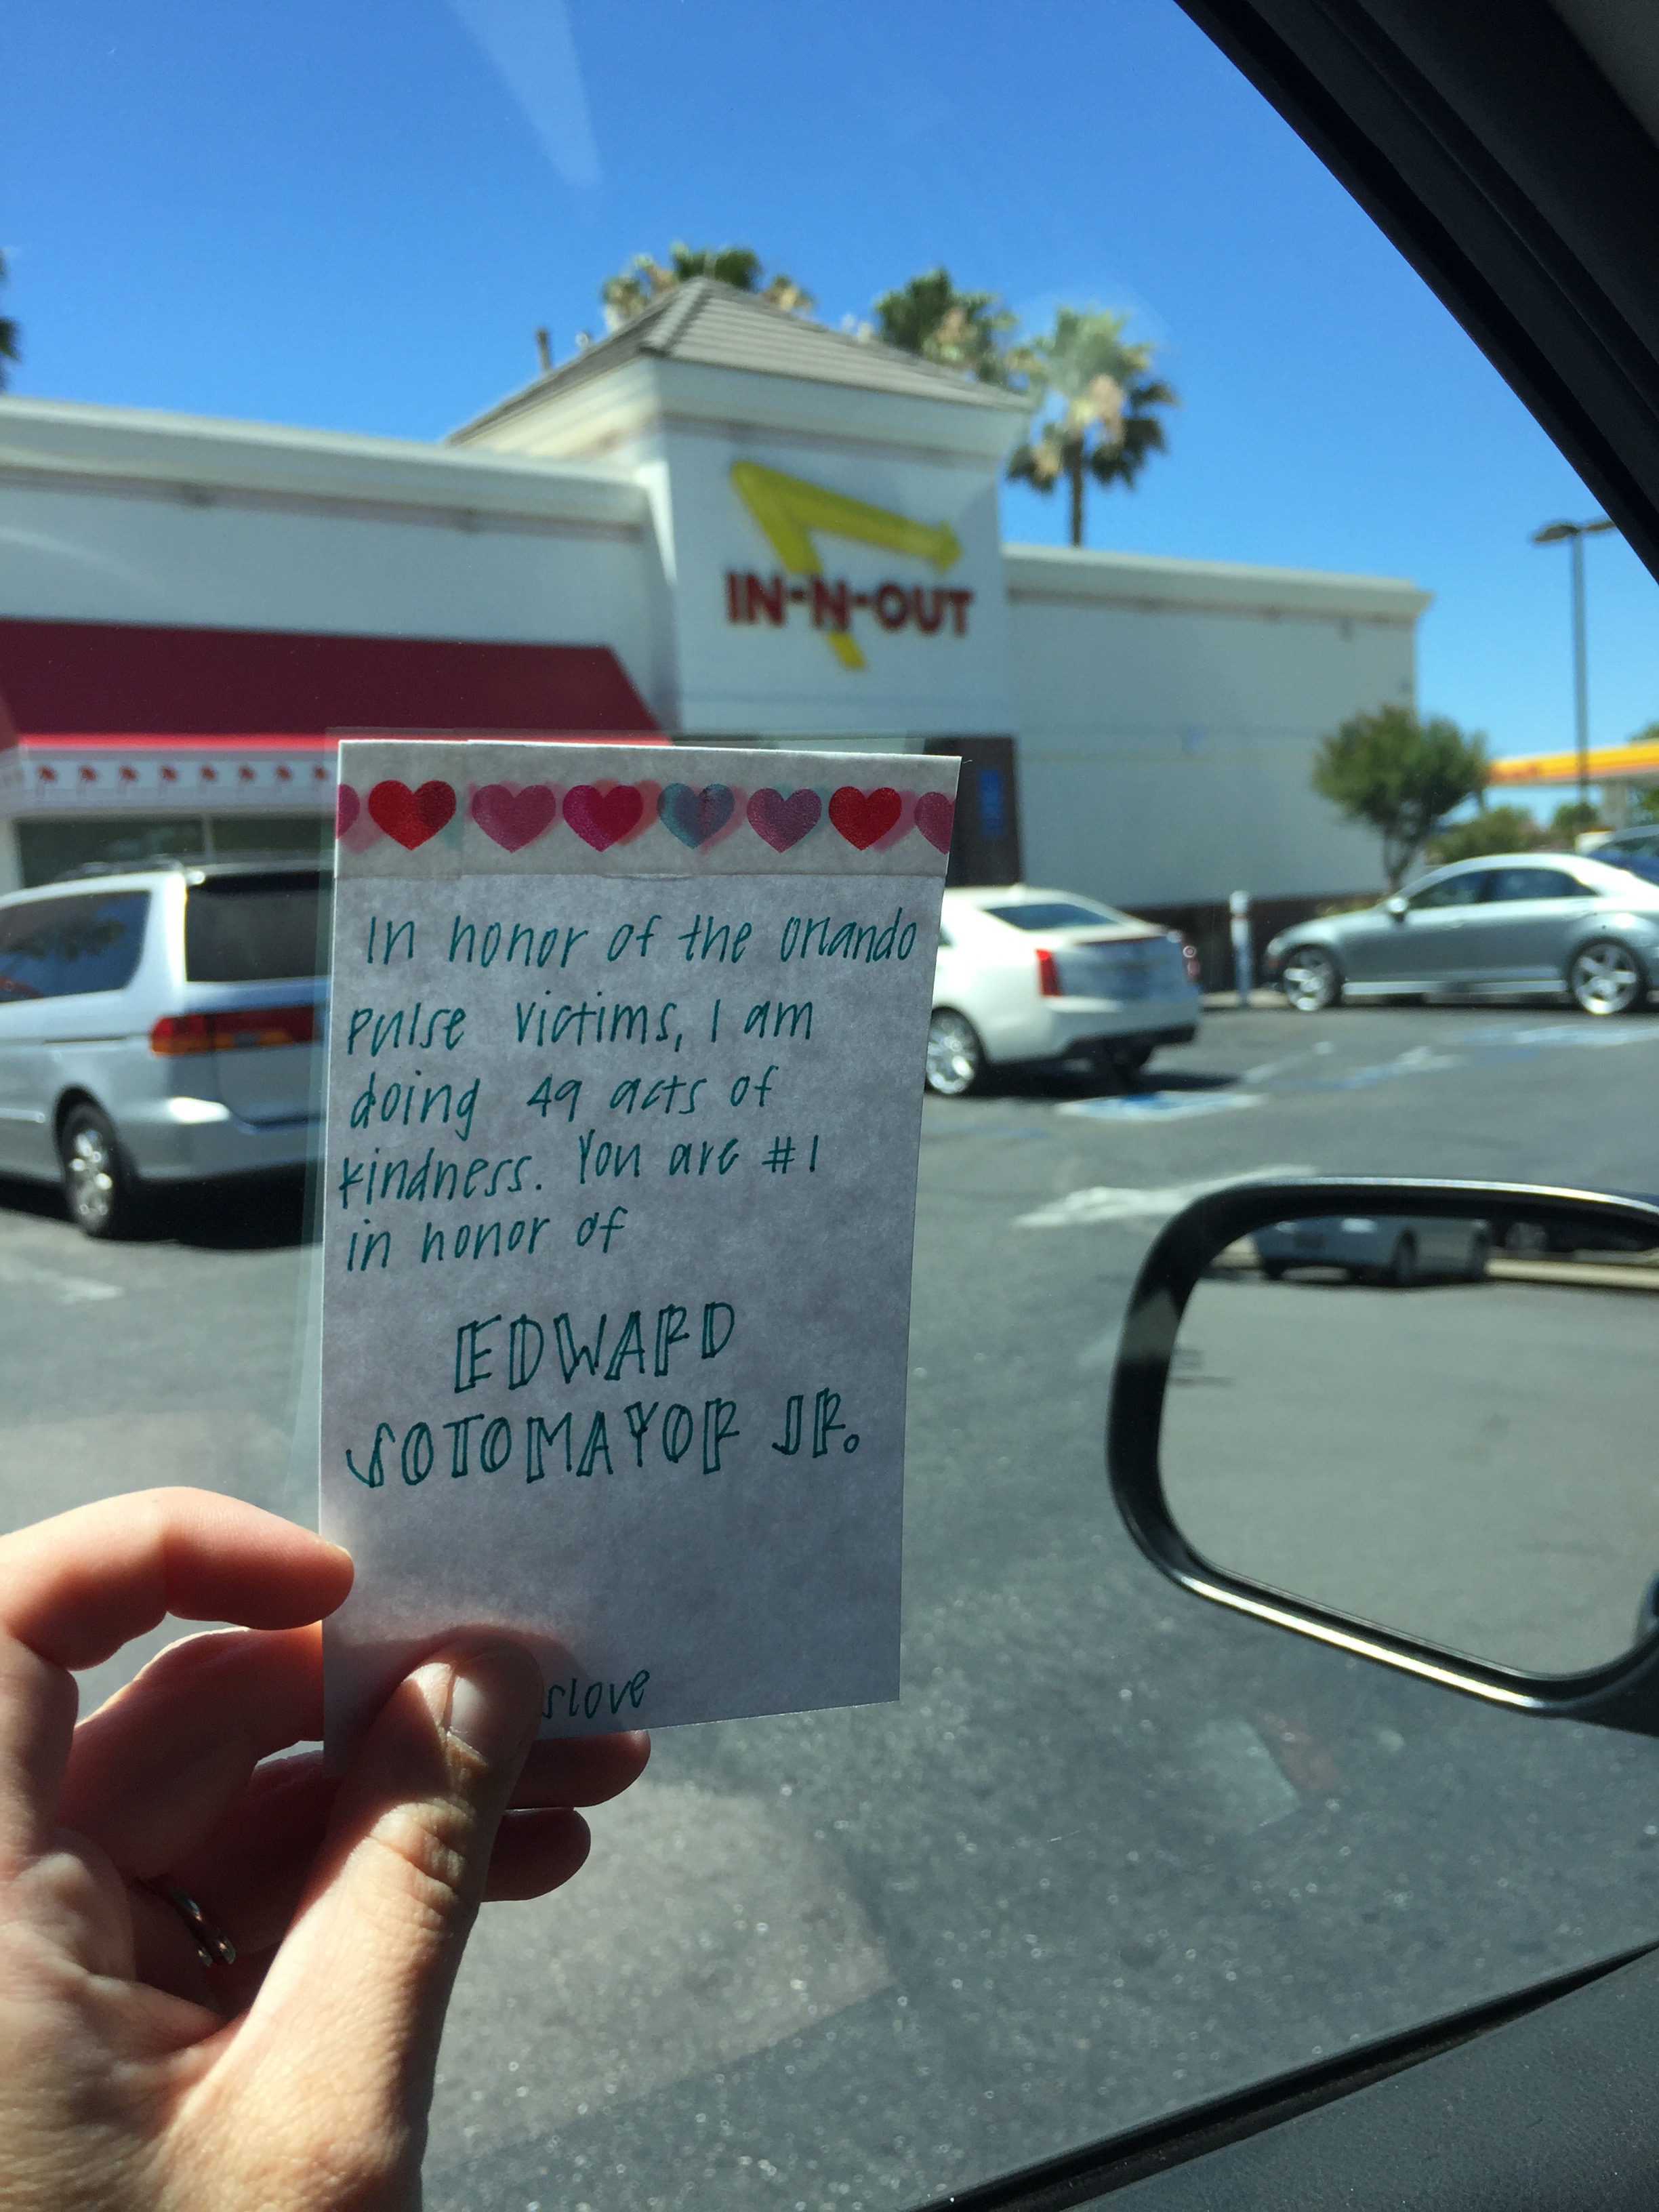 IN-N-OUT
In honor of the Orlando
pulse victims, I am
doing 49 acts of
kindness. You are #1
in honor of
EDWARD
SOTOMAYOR JR.
slove